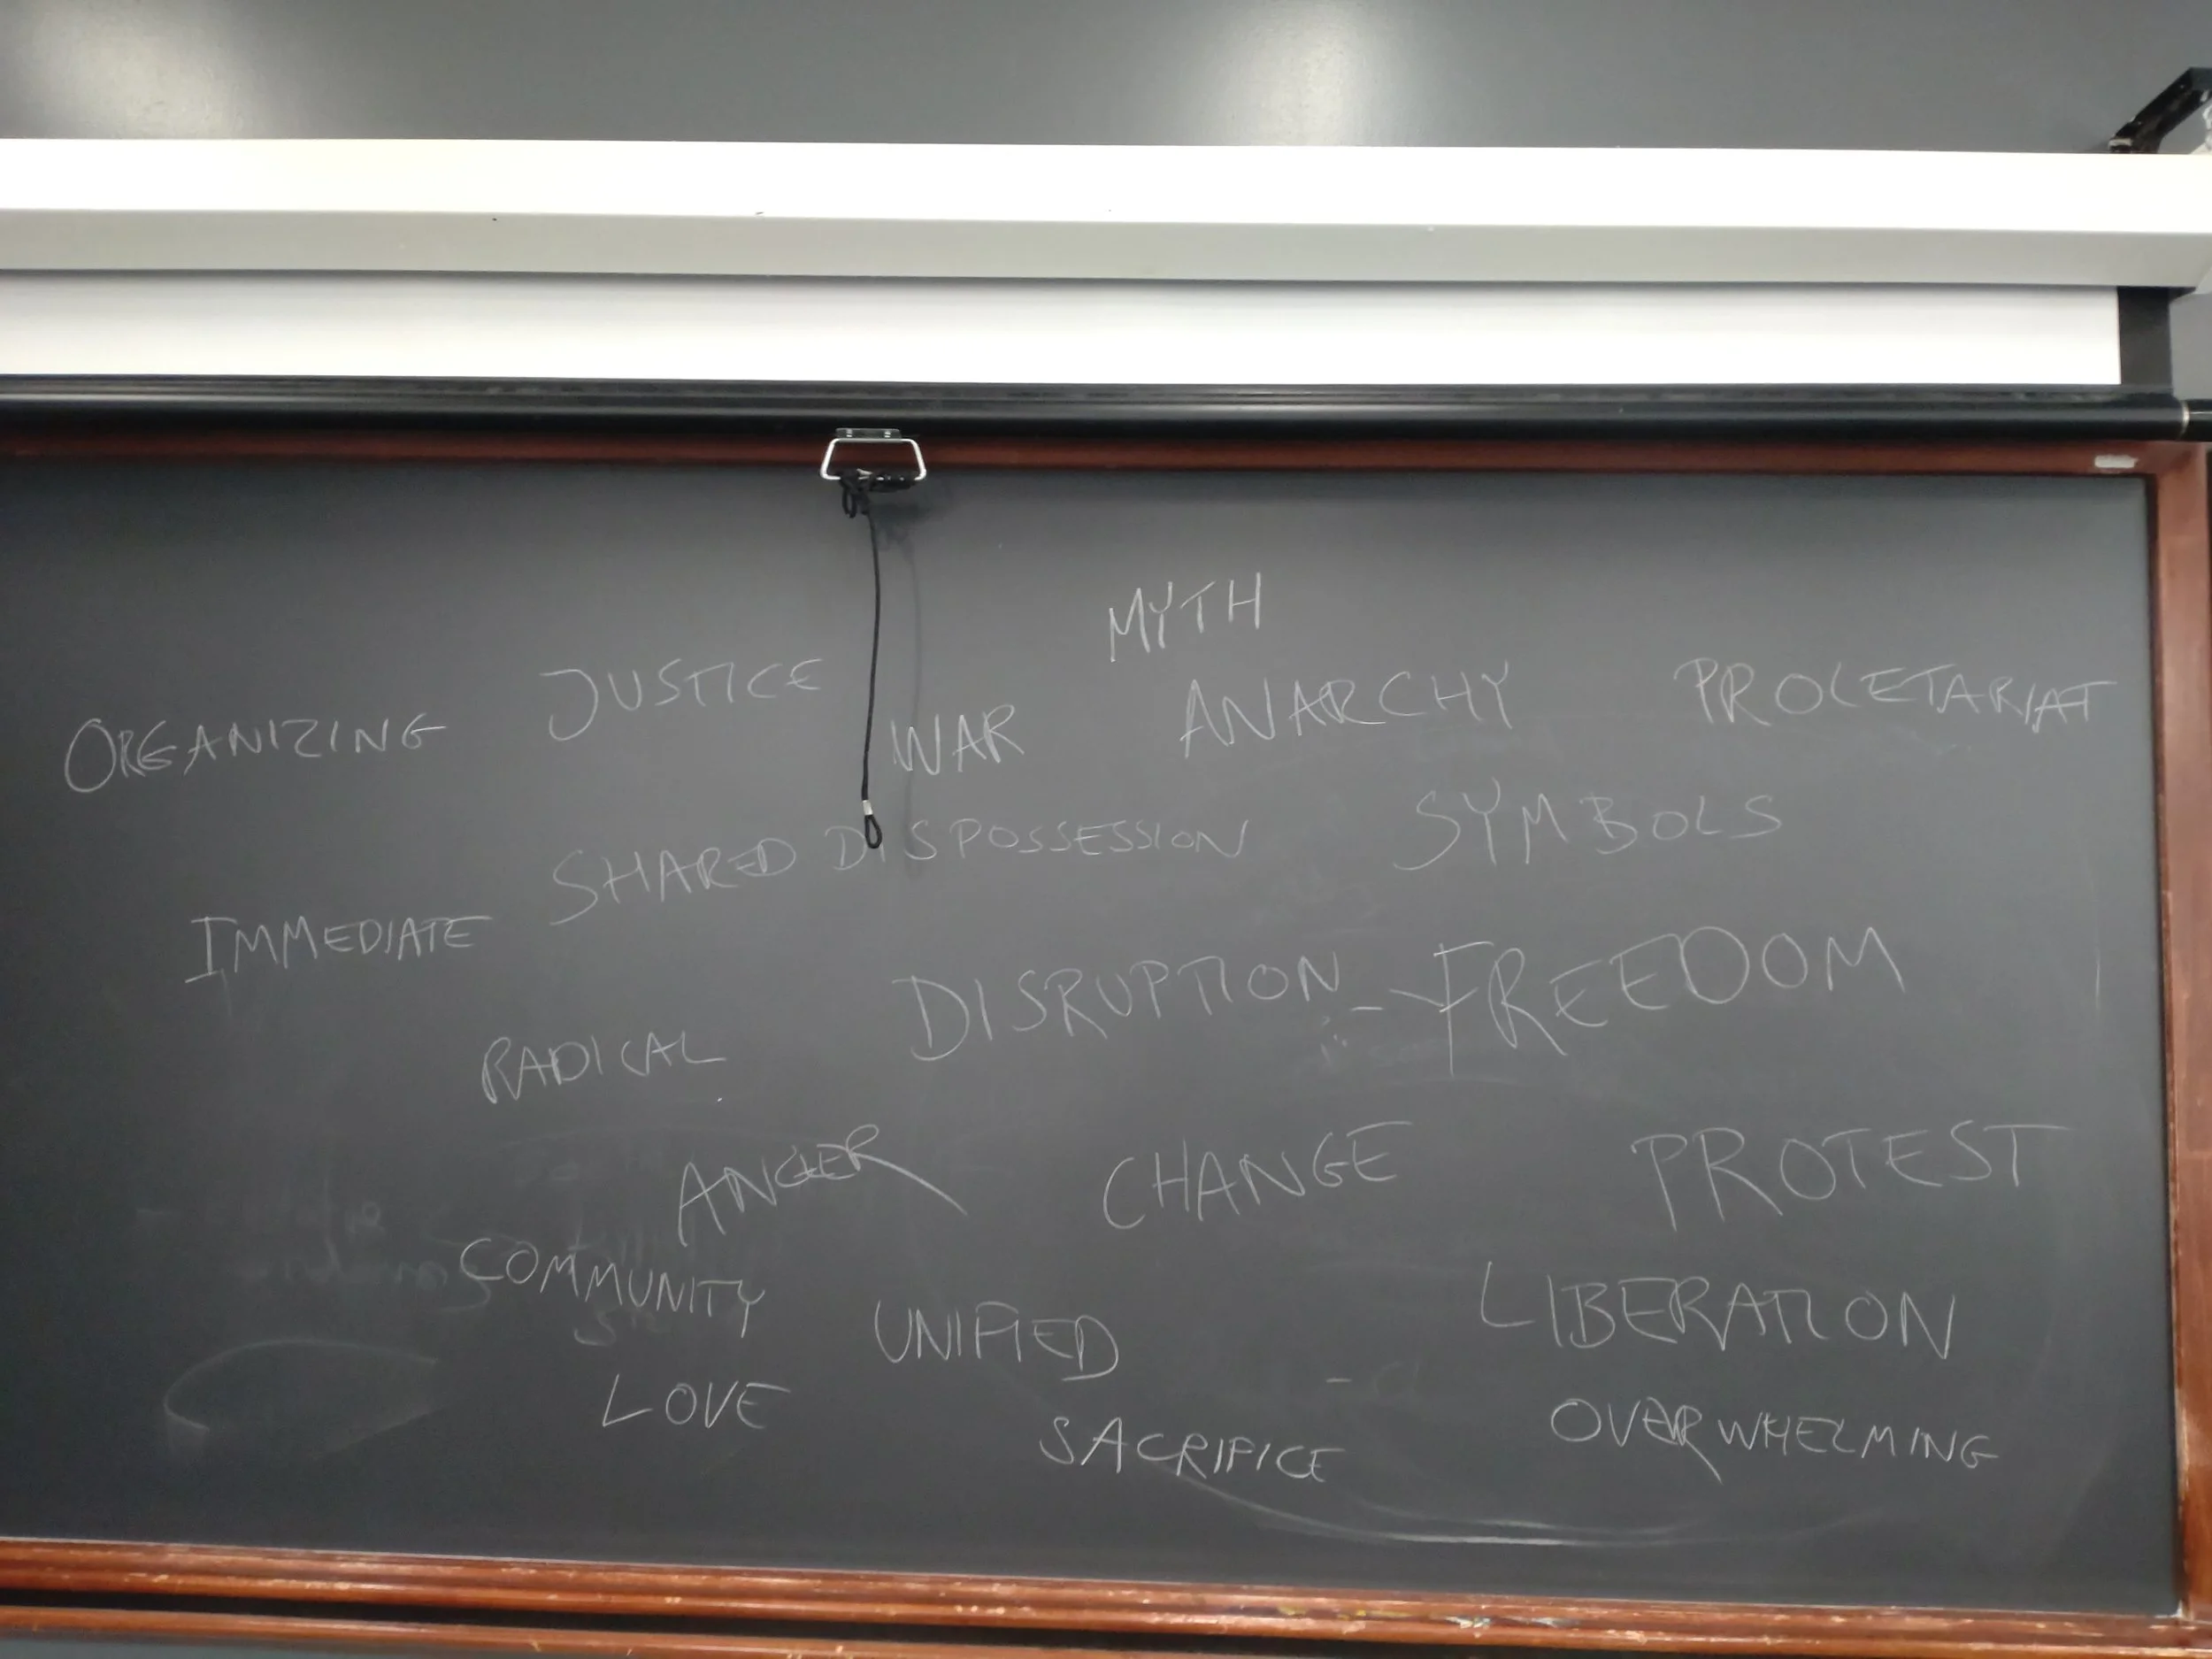 MYTH
ORGANIZING JUSTICE WAR ANARCHY PROLETARIAT
SHARED DISPOSSESSION SYMBOLS
IMMEDIATE
DISRUPTION FREEDOM
RADICAL
ANGER CHANGE PROTEST
COMMUNITY UNIFIED LIBERATION
LOVE SACRIFICE OVERWHELMING